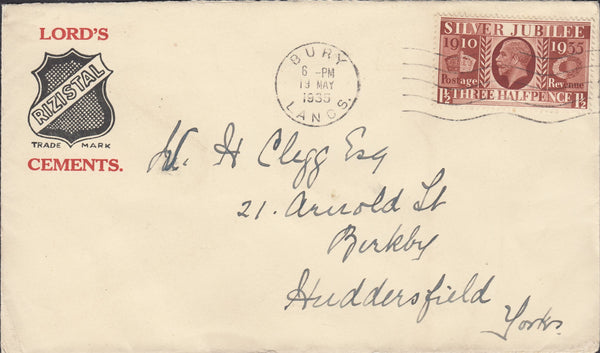 LORD'S
RIZISTAL
TRADE MARK
CEMENTS.
BURY
6 - PM
19 MAY
1935
LANCS.
SILVER JUBILEE
1910 1935
Postage Revenue
1½ THREE HALFPENCE 1½
W. H Clegg Esq
21. Arnold St
Birkby
Huddersfield
Yorks